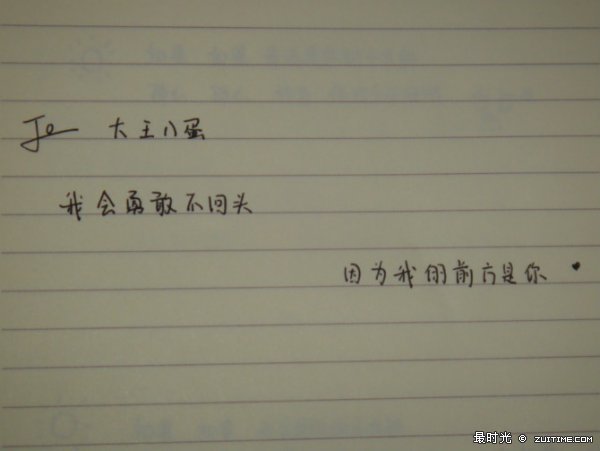 Je 大王八蛋
我会勇敢不回头
因为我的前方是你
最时光 © ZUITIME.COM